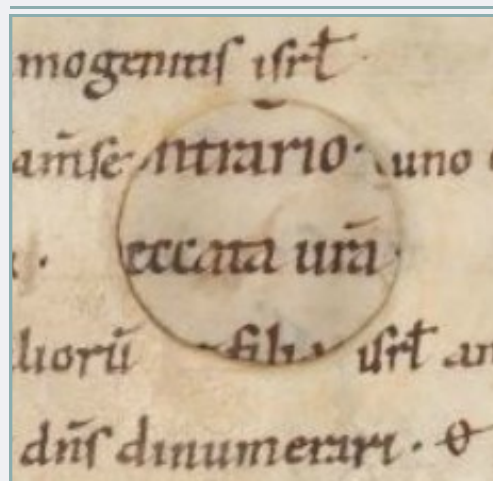 mogenitis isrł
am̄se ntrario · uno
eccata ur̄a ·
liorū filia isrł an
dn̄s dinumerari · &